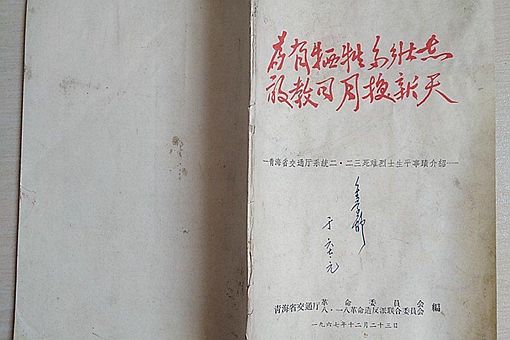 为有牺牲多壮志
敢教日月换新天
—青海省交通厅系统二·二三死难烈士生平事蹟介绍—
于
青海省交通厅革命委员会
八·一八革命造反派联合委员会 编
一九六七年十二月二十三日